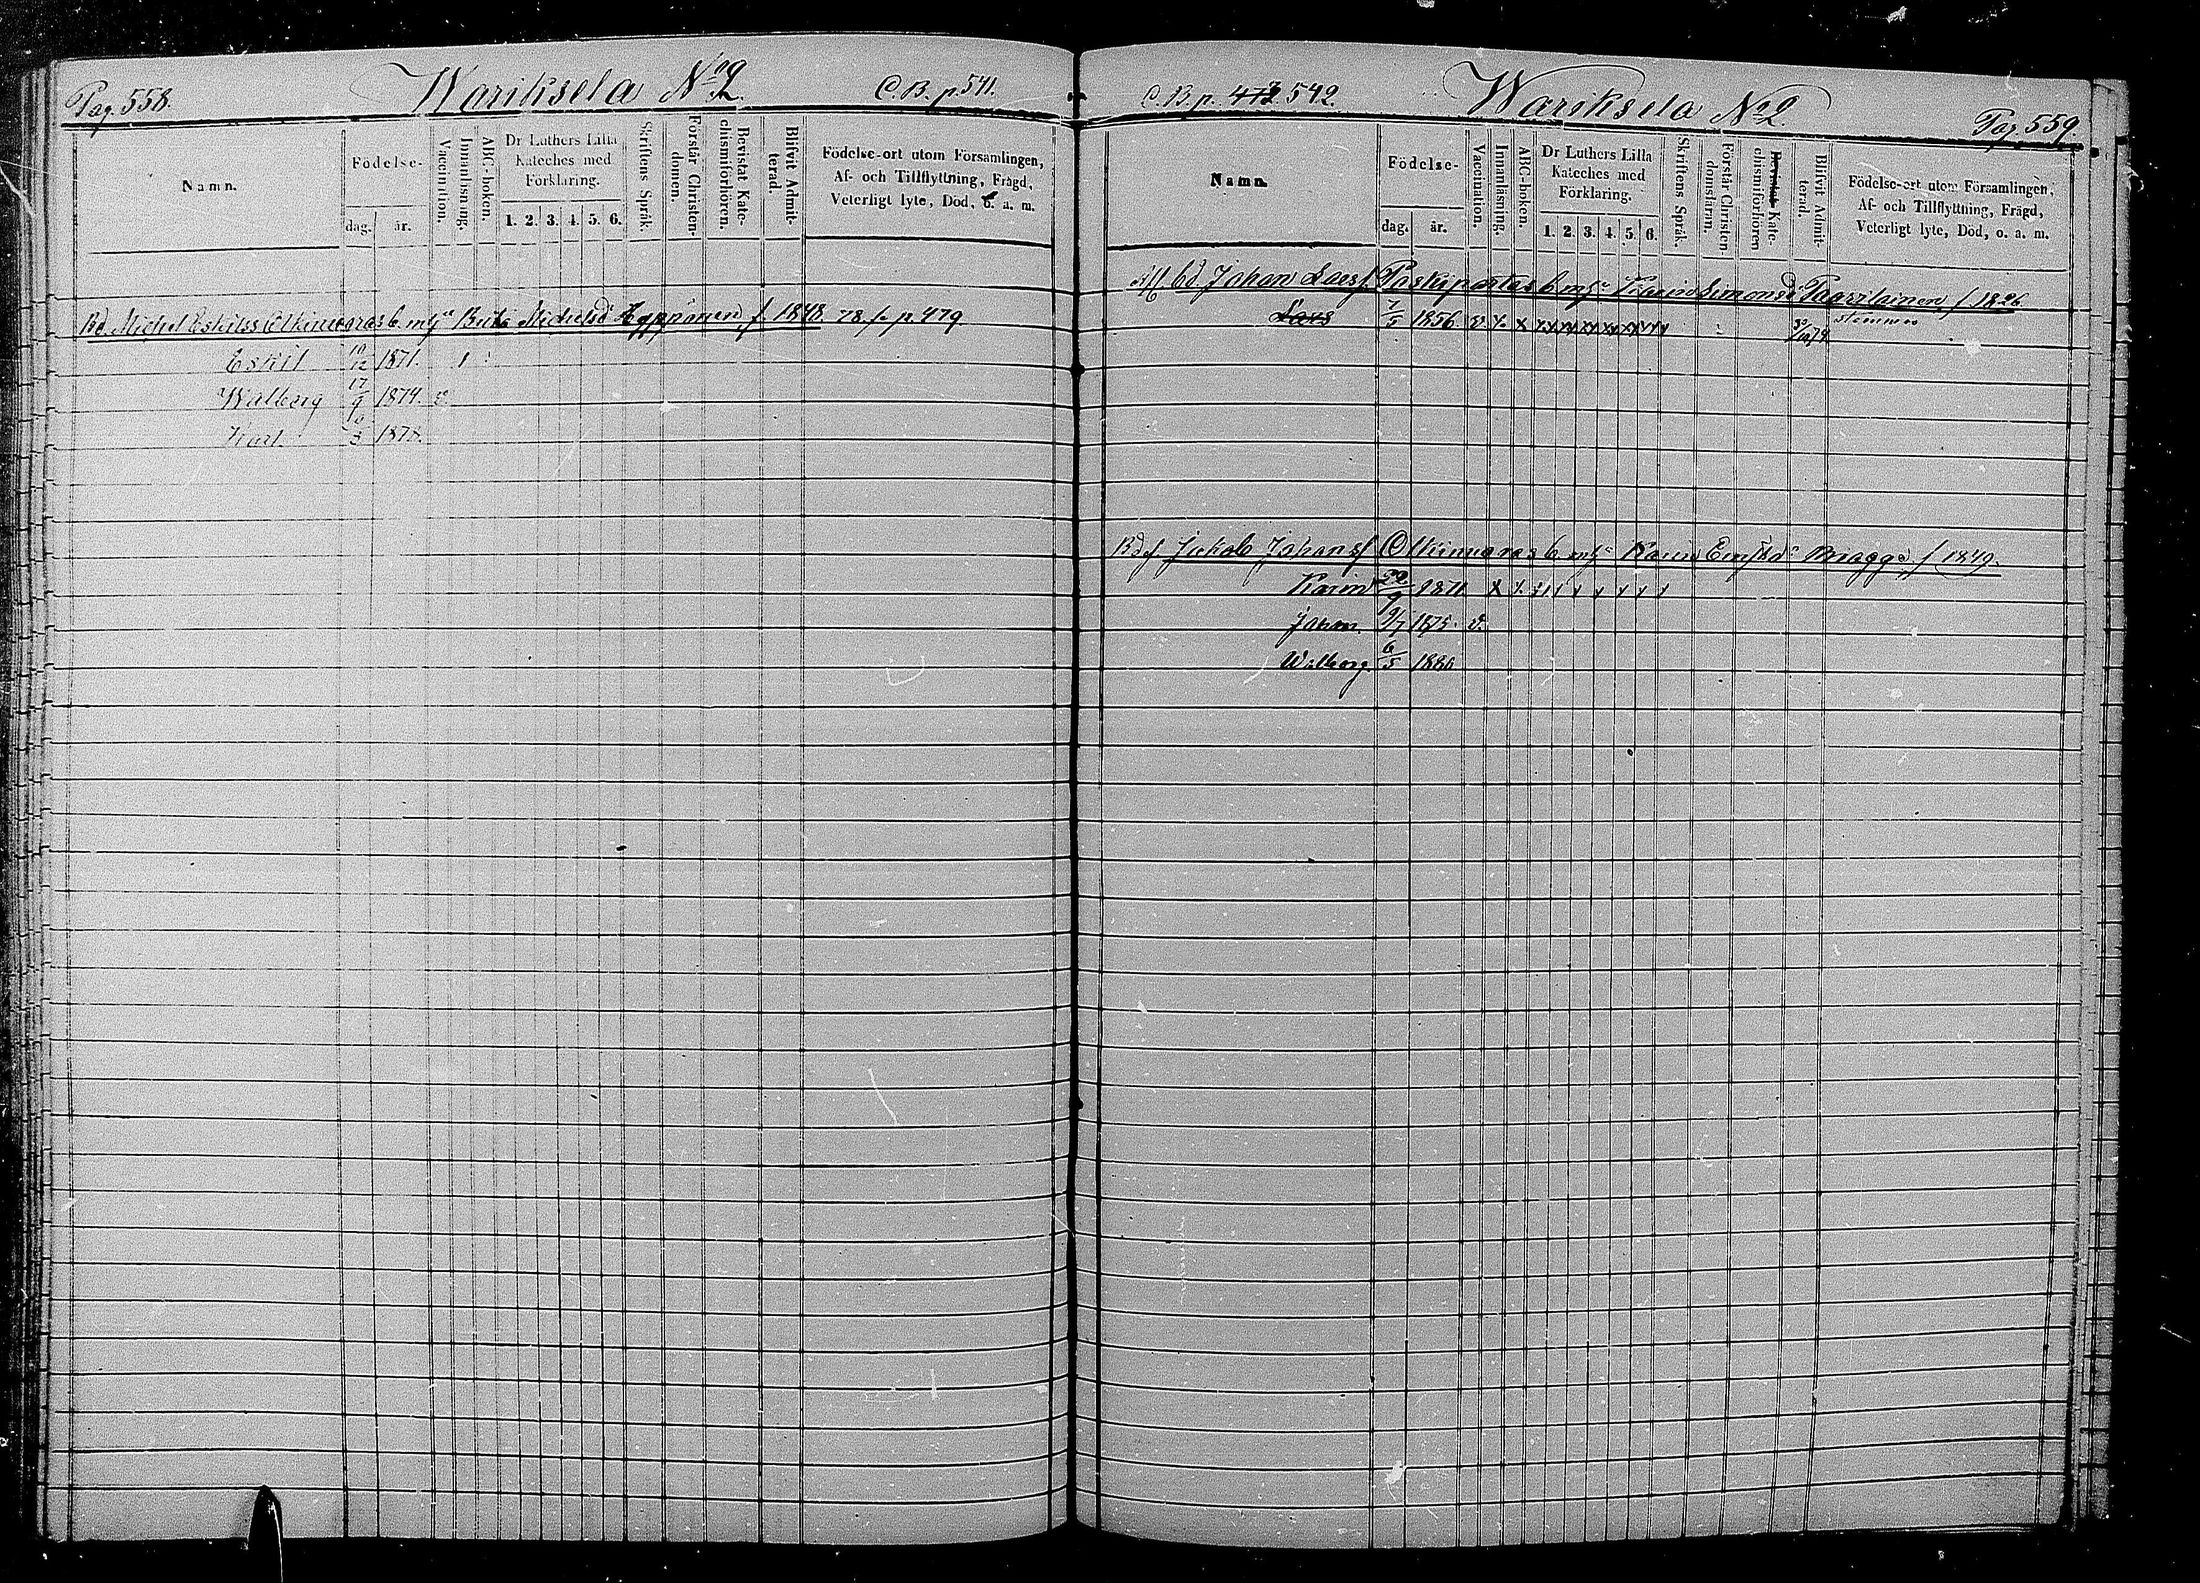 Pag. 558.
Wariksela No 2
C.B. p. 541.
Namn.
Födelse-
dag.
år.
Vaccination.
Innanläsning.
ABC-boken.
Dr Luthers Lilla
Kateches med
Förklaring.
1. 2. 3. 4. 5. 6.
Skriftens Språk.
Förstår Christen-
domen.
Bevistat Kate-
chismiförhören.
Blifvit Admit-
terad.
Födelse-ort utom Församlingen,
Af- och Tillflyttning, Frägd,
Veterligt lyte, Död, o. a. m.
Bd. Michel Eskilss Olkinuoras b. m/ Michelsd Hyppönen f. 1848. 78 p. 479
Eskil 12 1871.
Walborg 17/9 1874. v.
Karl 1878.
C.B. p. 542.
Wariksela No 2.
Pag. 559.
Namn.
Födelse-
dag.
år.
Vaccination.
Innanläsning.
ABC-boken.
Dr Luthers Lilla
Kateches med
Förklaring.
1. 2. 3. 4. 5. 6.
Skriftens Språk.
Förstår Christen-
domsläran.
Bevistat Kate-
chismiförhören
Blifvit Admit-
terad.
Födelse-ort utom Församlingen,
Af- och Tillflyttning, Frägd,
Veterligt lyte, Död, o. a. m.
Afl. bd Johan Larsf. b. m/ Karin Simonsd. Paarilainen f 1826
Lars 7/5 1856 v x x
Bd f Jakob Johansf Olkinuoras b. m/ Karin f 1849.
Karin 1871 x
Johan 9/7 1875. v.
Walborg. 6/5 1880